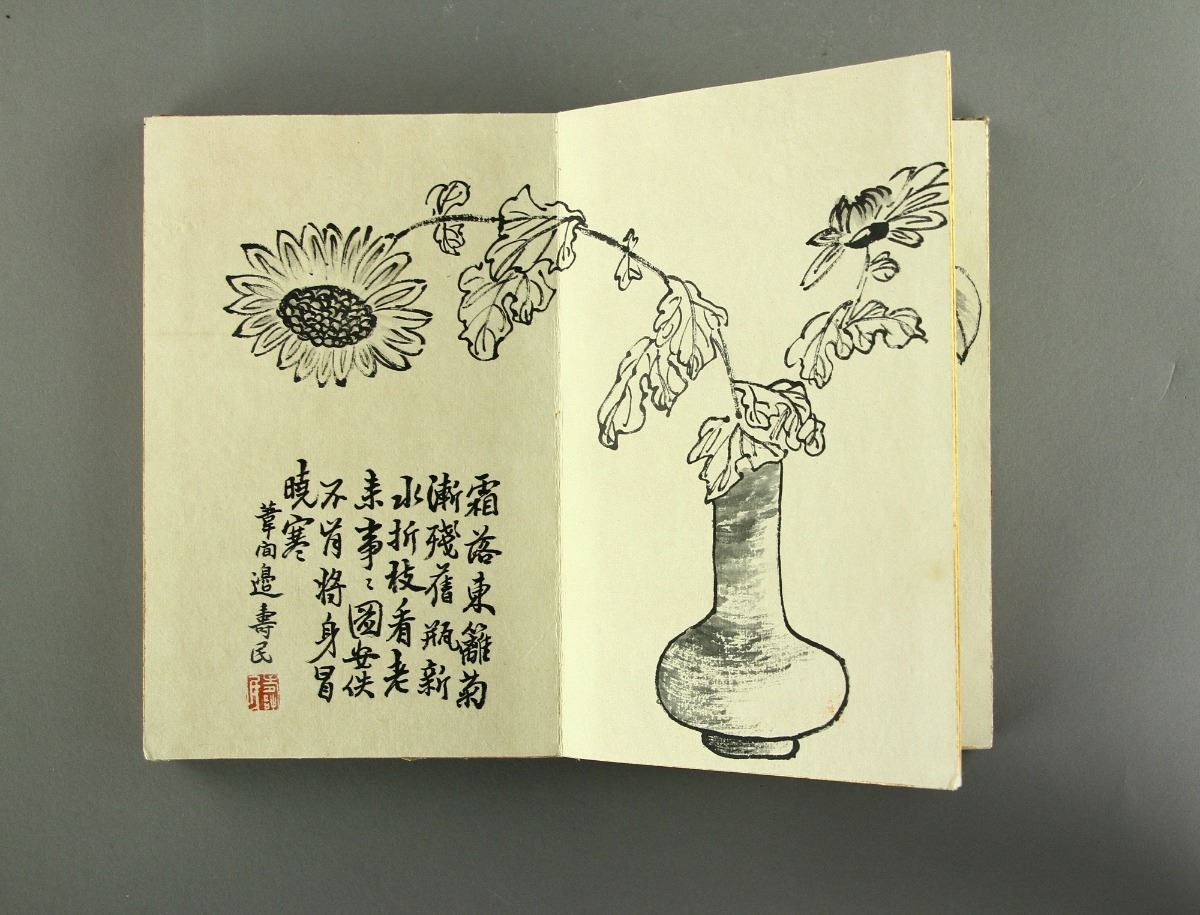 霜落東籬菊
漸殘舊瓶新
水折枝看老
来事〻圖安佚
不肯將身冒
曉寒
葦间邊壽民